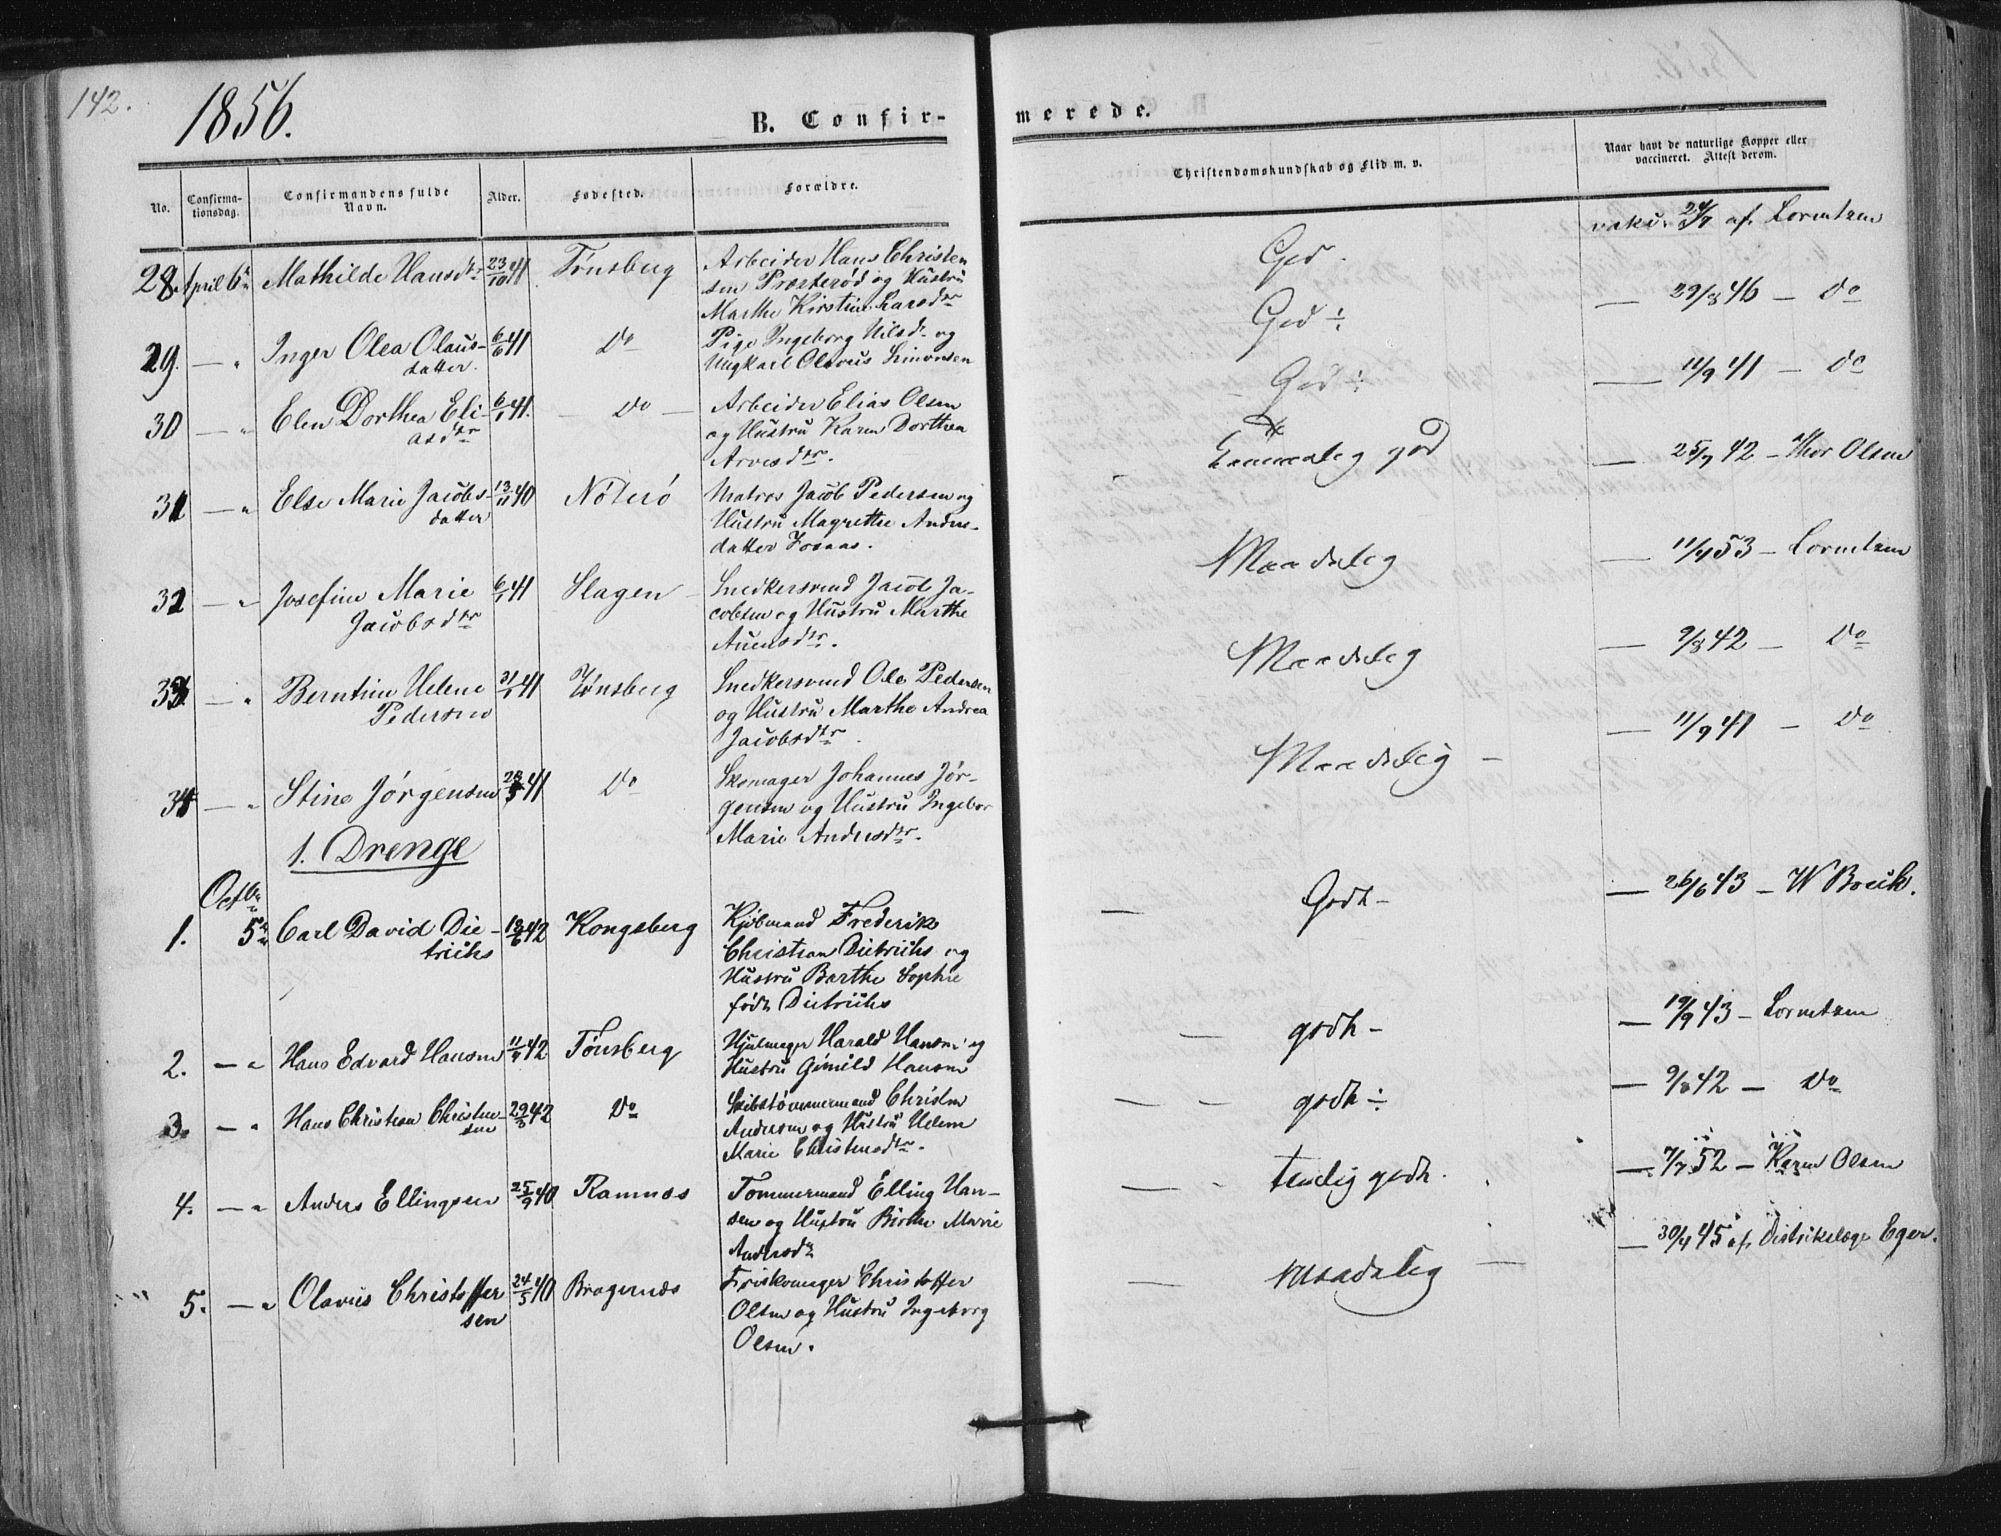 142.
1856.
B. Confir-
merede.
No.
Confirma-
tionsdag.
Confirmandens fulde
Navn.
Alder.
Fødested.
Forældre.
Christendomskundskab og Flid m. v.
Naar havt de naturlige Kopper eller
vaccineret. Attest derom.
28 April 6te Mathilde Hansdtr 23/10 41 Tønsberg Arbeider Hans Christen
sen Presterød og Hustru
Marthe Kirstine Larsdtr
God
vakc. 24/7 af Lorentzen
29. — " Inger Olea Olaus-
datter. 6/6 41 Do Pige Ingeborg Nilsd. og
Ungkarl Olavus Simonsen
God ÷
— 29/8 46 — Do
30 — " Elen Dorthea Eli-
asdtr 6/1 41. — Do — Arbeider Elias Olsen
og Hustru Karen Dorthea
Arvesdtr.
God ÷
— 11/9 41 — Do
31 — " Else Marie Jacobs-
datter 13/11 40 Nøterø Matros Jacob Pedersen og
Hustru Magrethe Anders-
datter
god
— 25/7 42 — Thor Olsen
32 — " Josefine Marie
Jacobsdtr 6/1 41 Slagen — Snedkersvend Jacob Ja-
cobsen og Hustru Marthe
Maadelig
— 11/4 53 — Lorentzen
33 — " Berntine Helene
Pedersen 31/1 41 Tønsberg Snedkersvend Ole Pedersen
og Hustru Marthe Andrea
Jacobsdtr
Maadelig
— 9/8 42 — Do
34 — " Stine Jørgensen 28/3 41 Do Skomager Johannes Jør-
gensen og Hustru Ingebor
Marie Andersdtr.
Maadelig —
— 11/9 41 — Do
1. Drenge
Octbr
1. 5te Carl David Die-
trichs 18/6 42 Kongsberg Kjøbmand Frederik
Christian Dietrichs og
Hustru Barthe Sophie
født Dietrichs
— Godt —
— 26/6 43 — W Boeck.
2. — " Hans Edvard Hansen 11/4 42 Tønsberg Hjulmager Harald Hansen og
Hustru Gunild Hansen
— godt —
— 19/9 43 — Lorentzen
3. — " Hans Christian Christen
sen 29/3 42 Do Skibstømmermand Christen
Andersen og Hustru Helene
Marie Christensdtr.
— — godt ÷
— 9/8 42 — Do
4. — " Anders Ellingsen 25/9 40 Ramnæs Tømmermand Elling Han-
sen og Hustru Birthe Marie
Andersdtr
— — temlig godt.
— 7/7 52 — Karen Olsen
5. — " Olavus Christoffer
sen 24/5 40 Bragernæs Christoffer
Olsen og Hustru Ingeborg
Olsen.
— Maadelig —
— 30/4 45 af Distriktslæge Eger.